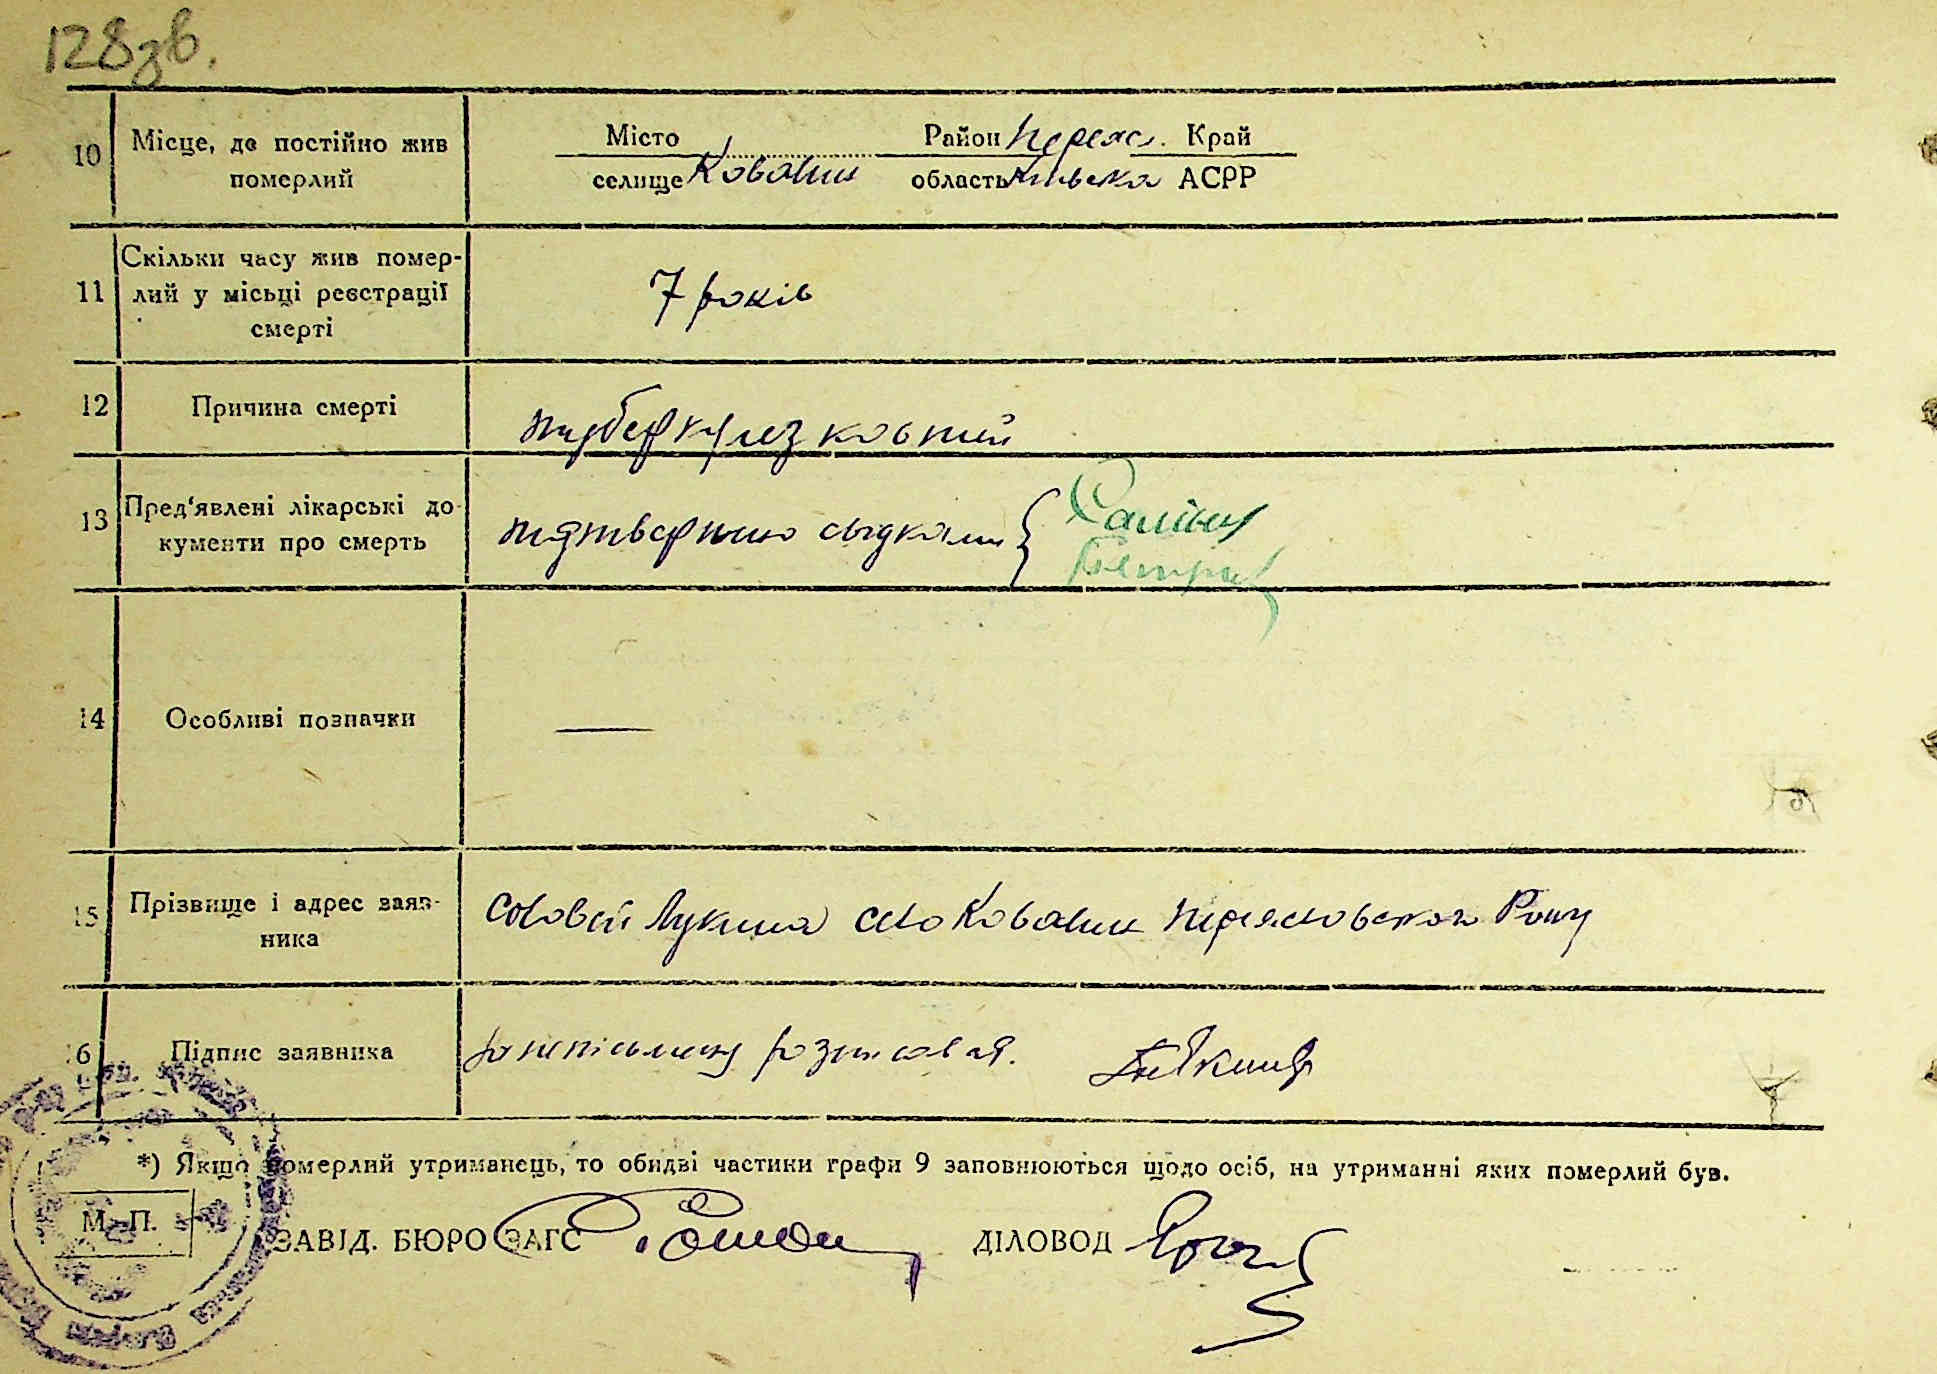 128зв.
10 Місце, де постійно жив померлий
Місто Район Переяс. Край
селище Ковалин область Київська АСРР
11 Скільки часу жив померлий у місьці реєстрації смерті
7 років
12 Причина смерті
туберкулез
13 Пред'явлені лікарські документи про смерть
14 Особливі позначки
—
15 Прізвище і адрес заявника
Соловей Лукина село Ковалин Переясловського Рону
16 Підпис заявника
за неписьмену розписовая.
*) Якщо померлий утриманець, то обидві частини графи 9 заповнюються щодо осіб, на утриманні яких померлий був.
М. П.
ЗАВІД. БЮРО ЗАГС ДІЛОВОД